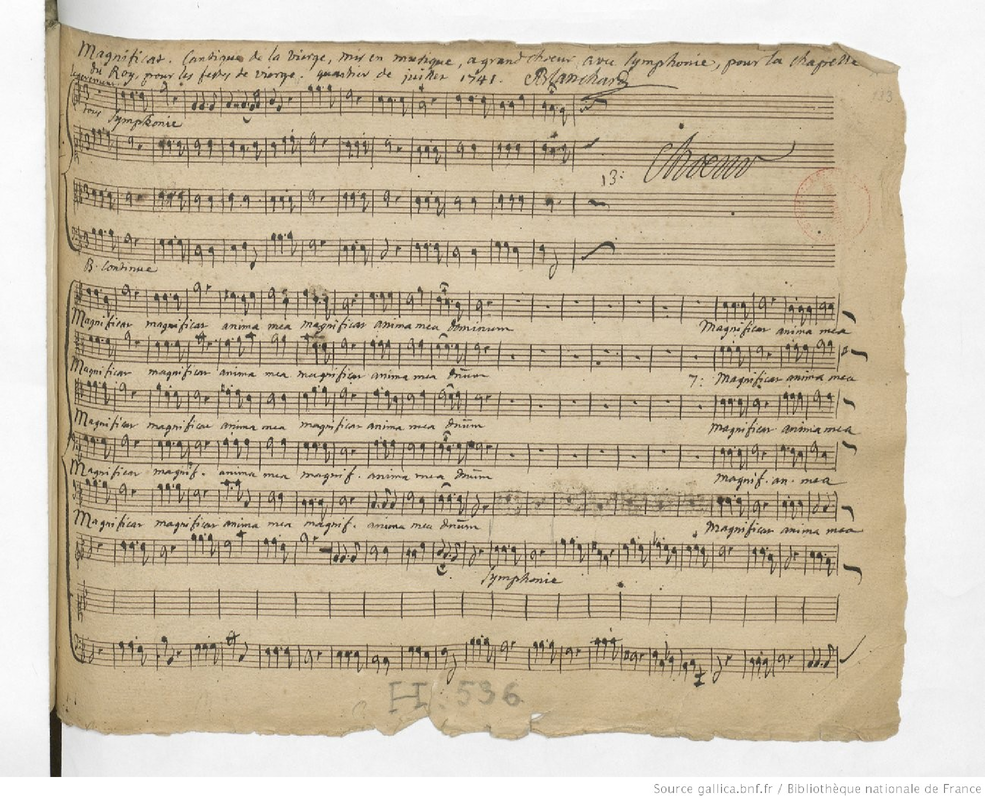 Magnificat. Cantique de la vierge, mis en musique, a grand choeur avec symphonie, pour la chapelle
du Roy, pour les festes de vierge. quartier de juillet 1741. Blanchard
Symphonie
Choeur
13:
B. Continue
Magnificat magnificat anima mea magnificat anima mea dominum Magnificat anima mea
Magnificat magnificat anima mea magnificat anima mea dnum 7: Magnificat anima mea
Magnificat magnificat anima mea magnificat anima mea dnum Magnificat anima mea
Magnificat magnif. anima mea magnif. anima mea dnum magnif. an. mea
Magnificat magnificat anima mea magnif. anima mea dnum Magnificat anima mea
Symphonie
H. 536
Source gallica.bnf.fr / Bibliothèque nationale de France